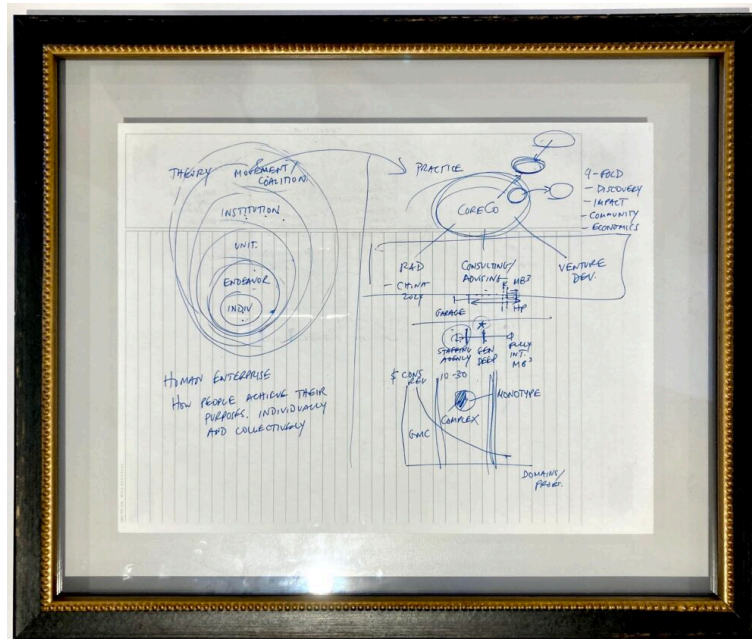 THEORY
MOVEMENT/
COALITION
INSTITUTION
UNIT
ENDEAVOR
INDIV
HUMAN ENTERPRISE
HOW PEOPLE ACHIEVE THEIR
PURPOSES, INDIVIDUALLY
AND COLLECTIVELY
PRACTICE
CORECO
- DISCOVERY
- IMPACT
- COMMUNITY
- ECONOMICS
R&D
- CHINA
CONSULTING/
ADVISING
VENTURE
DEV.
MB³
GARAGE
HP
STAFFING
AGENCY
GEN
DEEP
FULLY
INT.
MB³
$ CONS
REV
10-30
MONOTYPE
COMPLEX
GMC
DOMAINS/